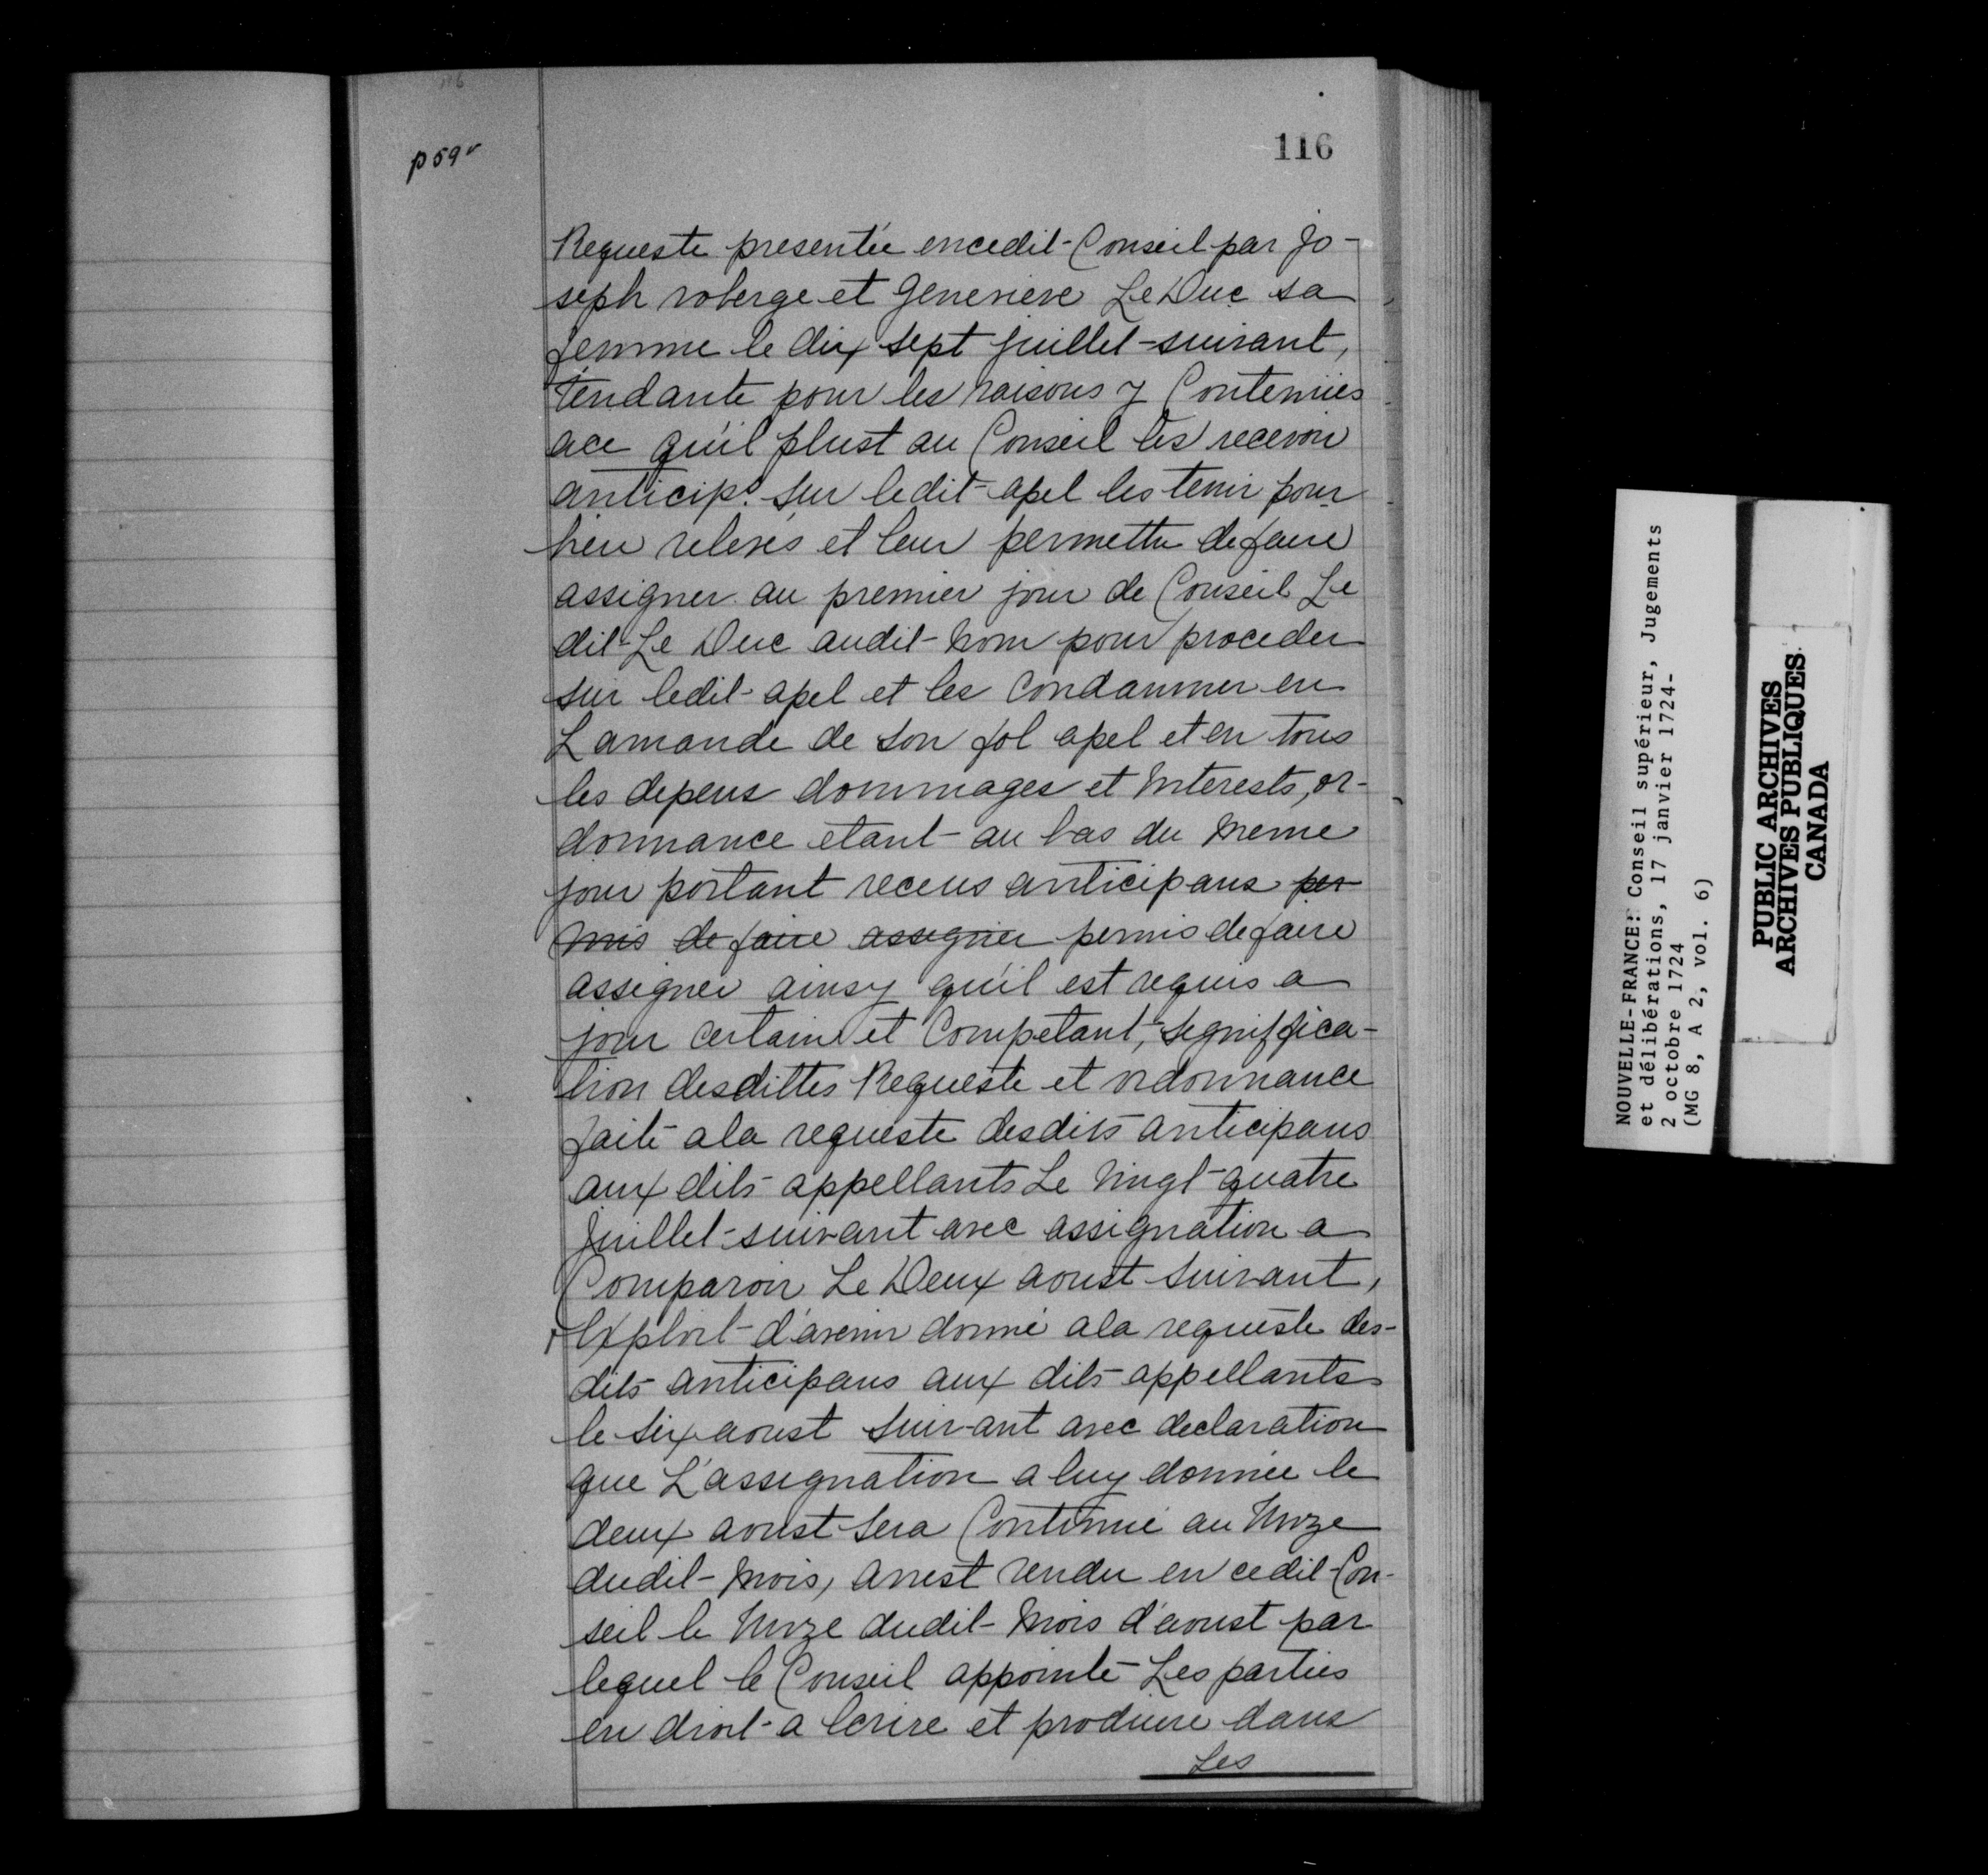 116
p 59v
116
Requeste presentée encedit Conseil par Jo-
seph roberge et Genevieve Le Duc sa
femme le dix sept juillet suivant,
tendante pour les raisons y Contenües
ace qu'il plust au Conseil les recevoir
anticip.s sur ledit apel les tenir pour
bien relevés et leur permettre defaire
assigner au premier jour de Conseil Le
dit Le Duc audit Nom pour proceder
sur ledit apel et les Condamner en
Lamande de son fol apel et en tous
les depens dommages et Interests, or-
donnance etant au bas du Meme
jour portant receus anticipans per
mis de faire assigner permis defaire
assigner ainsy qu'il est requis a
jour certain et Competant, signiffica-
tion desdittes Requeste et ordonnance
faite ala requeste desdits anticipans
aux dits appellants Le Vingt quatre
Juillet suivant avec assignation a
Comparoir Le Deux aoust suivant,
Exploit d'avenir donné ala requeste des-
dits anticipans aux dits appellants
le six aoust suivant avec declaration
que L'assignation a luy donnée le
deux aoust sera Continué au Unze
dudit Mois, arrest rendu en cedit Con-
seil le Unze dudit Mois d'aoust par
lequel le Conseil appointe Les parties
en droit a Ecrire et produire dans
Les
NOUVELLE-FRANCE: Conseil supérieur, Jugements
et délibérations, 17 janvier 1724-
2 octobre 1724
(MG 8, A 2, vol. 6)
PUBLIC ARCHIVES
ARCHIVES PUBLIQUES
CANADA